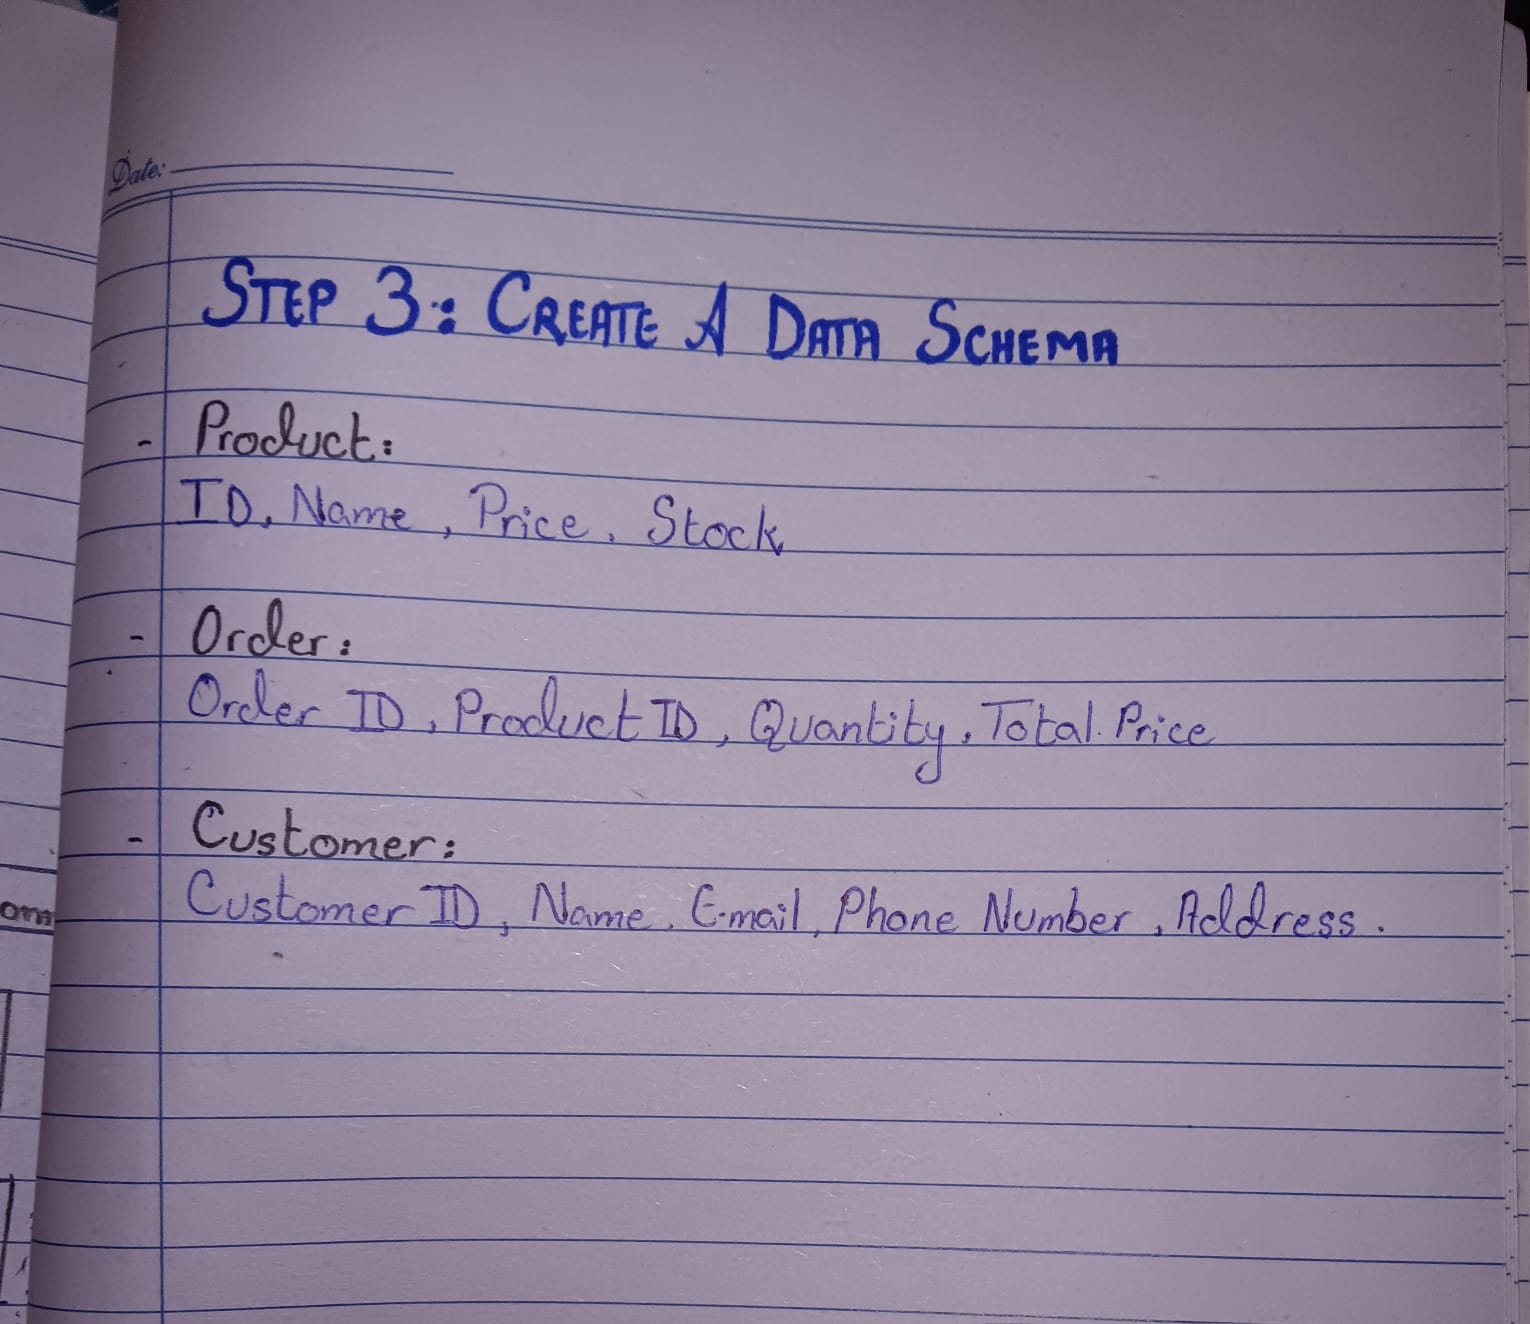 Date:
STEP 3: CREATE A DATA SCHEMA
- Product:
ID, Name, Price, Stock
- Order:
Order ID, Product ID, Quantity, Total Price
- Customer:
Customer ID, Name, E-mail, Phone Number, Address.